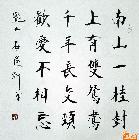 南山一桂樹
上有雙鴛鴦
千年長交頸
歡愛不相忘